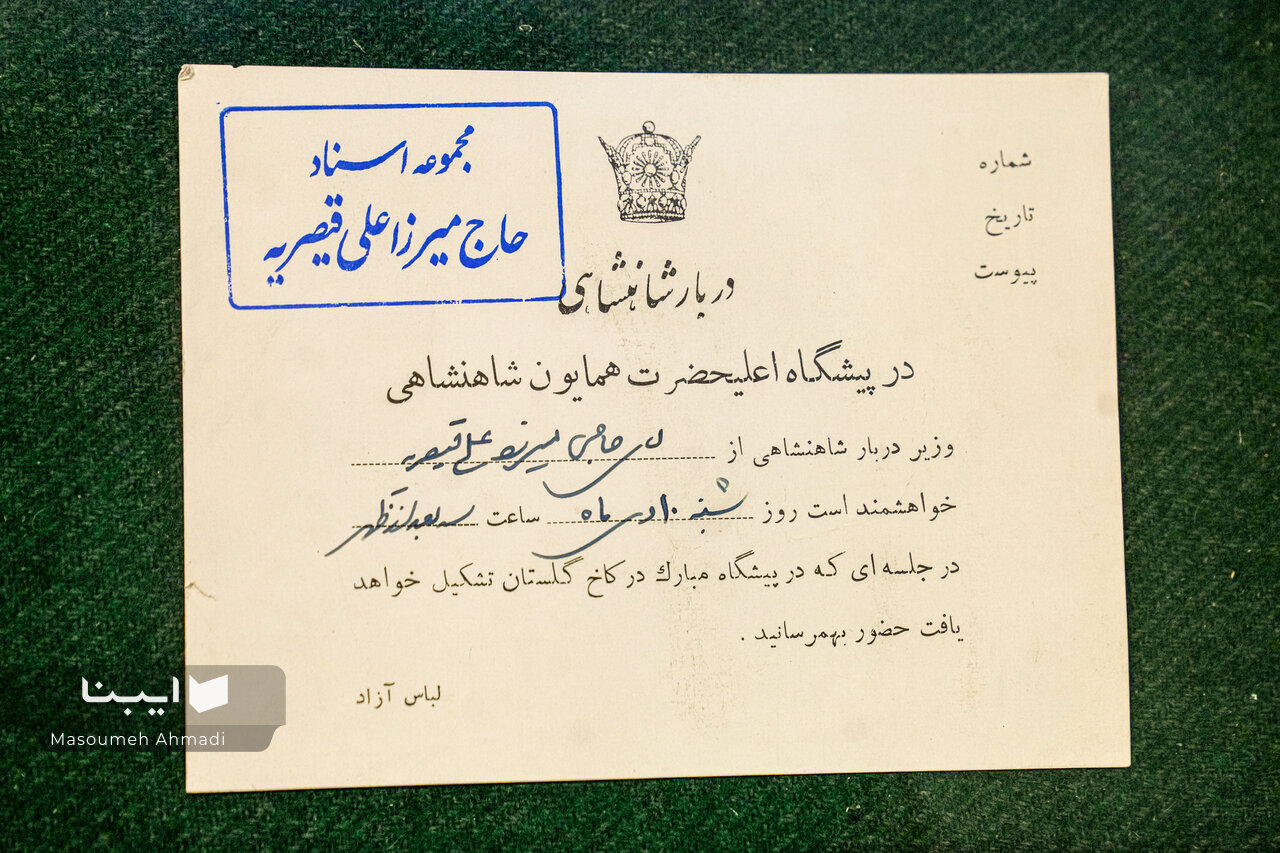 شماره
تاریخ
پیوست
مجموعه اسناد
حاج میرزا علی قیصریه
دربار شاهنشاهی
در پیشگاه اعلیحضرت همایون شاهنشاهی
وزیر دربار شاهنشاهی از آقای حاجی میرزا علی قیصریه
خواهشمند است روز شنبه ۱۰ دی ماه ساعت سه بعد از ظهر
در جلسه ای که در پیشگاه مبارك در کاخ گلستان تشکیل خواهد
یافت حضور بهمرسانید .
لباس آزاد
ایبنا
Masoumeh Ahmadi